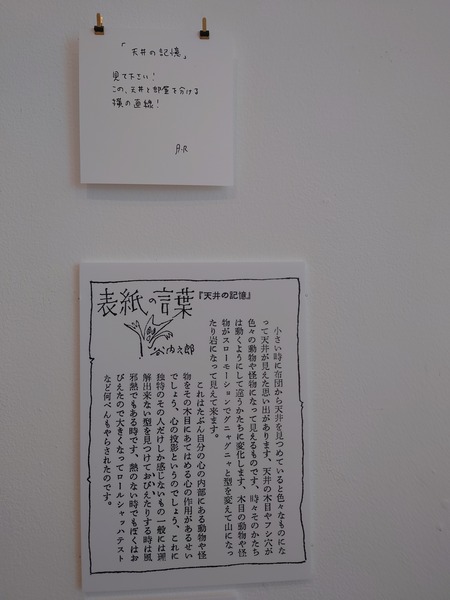 「天井の記憶」
見て下さい!
この、天井と部屋を分ける
横の直線!
A.R
表紙の言葉
『天井の記憶』
谷内六郎
小さい時に布団から天井を見つめていると色々なものにな
って天井が見えた思い出があります、天井の木目やフシ穴が
色々の動物や怪物になって見えるものです、時々そのかたち
は動くようにして違うかたちに変化します、木目の動物や怪
物がスローモーションでグニャグニャと型を変えて山になっ
たり岩になって見えて来ます。
これはたぶん自分の心の内部にある動物や怪
物をその木目にあてはめる心の作用があるせい
でしょう、心の投影というのでしょう、これに
独特のその人だけしか感じないもの一般には理
解出来ない型を見つけておびえたりする時は風
邪熱でもある時です、熱のない時でもぼくはお
びえたので大きくなってロールシャッハテスト
など何べんもやらされたのです。